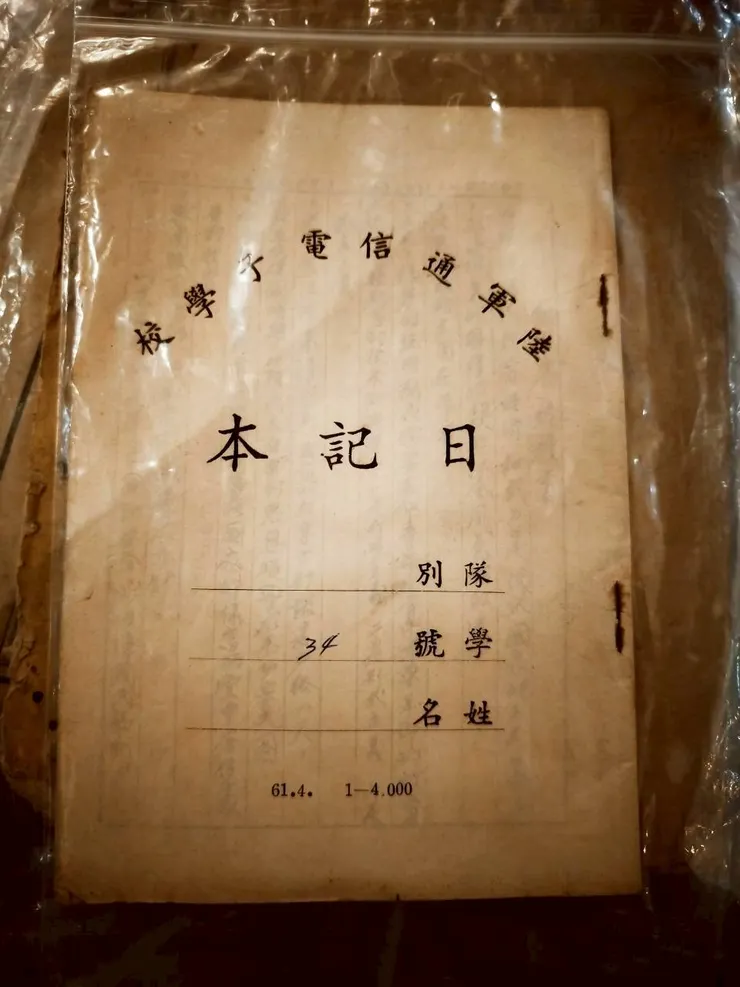 陸軍通信電子學校
日記本
隊別
學號 34
姓名
61.4. 1—4.000